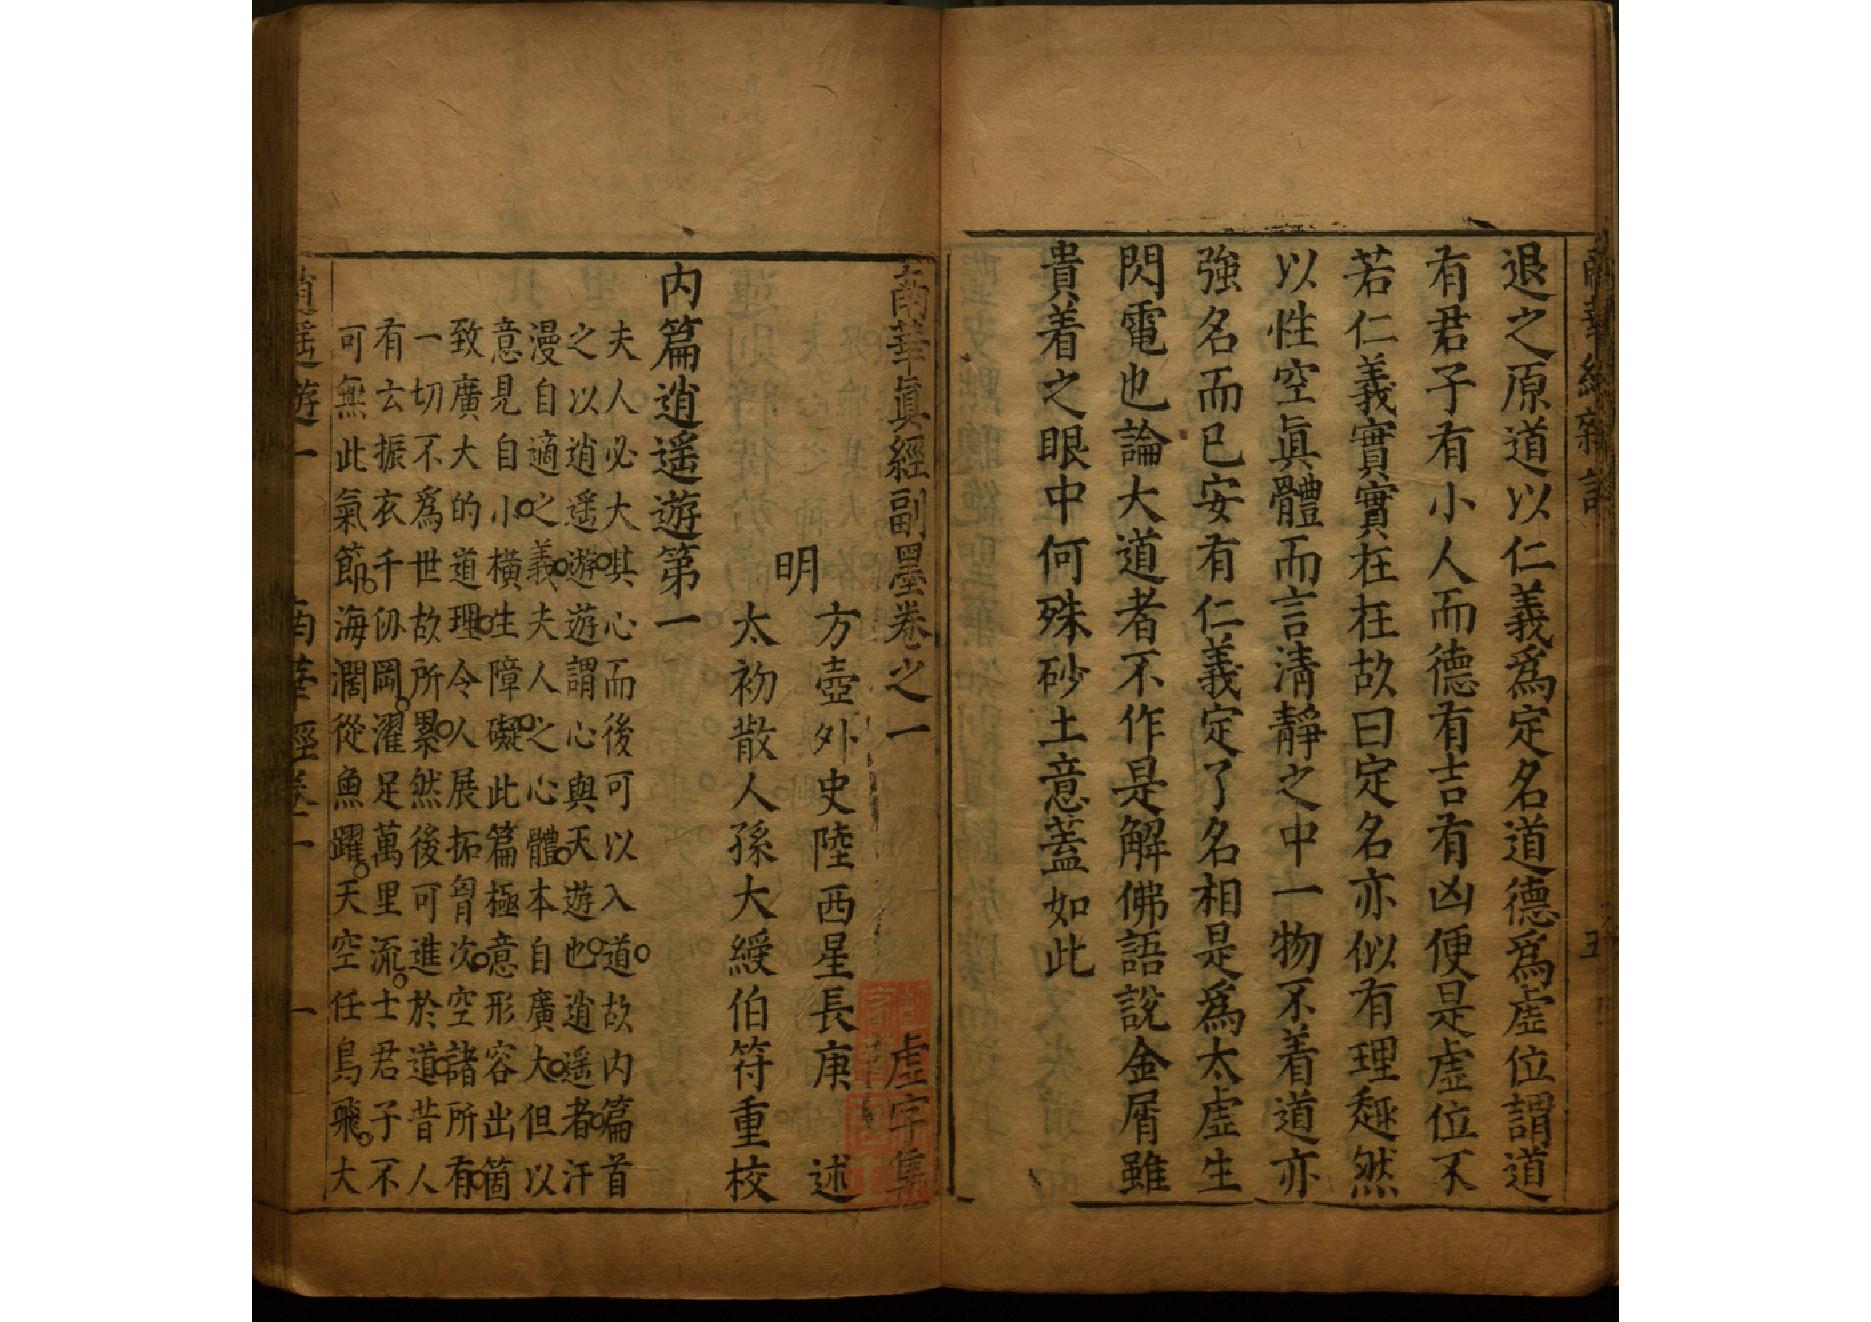 南華經雜記
五
退之原道以仁義爲定名道德爲虛位謂道
有君子有小人而德有吉有凶便是虛位不
若仁義實實在在故曰定名亦似有理趣然
以性空眞體而言清靜之中一物不着道亦
強名而已安有仁義定了名相是爲太虛生
閃電也論大道者不作是解佛語說金屑雖
貴着之眼中何殊砂土意蓋如此
南華眞經副墨卷之一 虛字集
方壺外史陸西星長庚 述
明
太初散人孫大綬伯符重校
内篇逍遙遊第一
夫人必大其心而後可以入道故内篇首
之以逍遙遊遊謂心與天遊也逍遙者汗
漫自適之義夫人之心體本自廣大但以
意見自小橫生障礙此篇極意形容出箇
致廣大的道理令人展拓胷次空諸所有
一切不爲世故所累然後可進於道昔人
有云振衣千仞岡濯足萬里流士君子不
可無此氣節海濶從魚躍天空任鳥飛大
逍遙遊一 南華經卷一 一